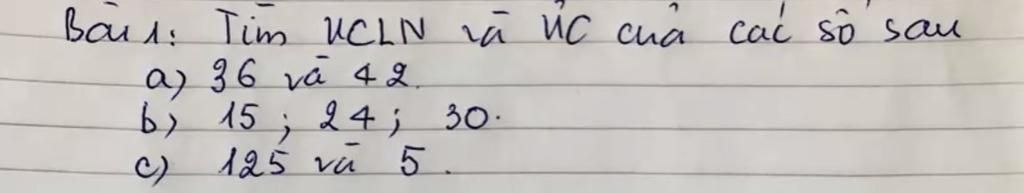 Bài 1: Tìm ƯCLN và ƯC của các số sau
a) 36 và 42.
b) 15; 24; 30.
c) 125 và 5.